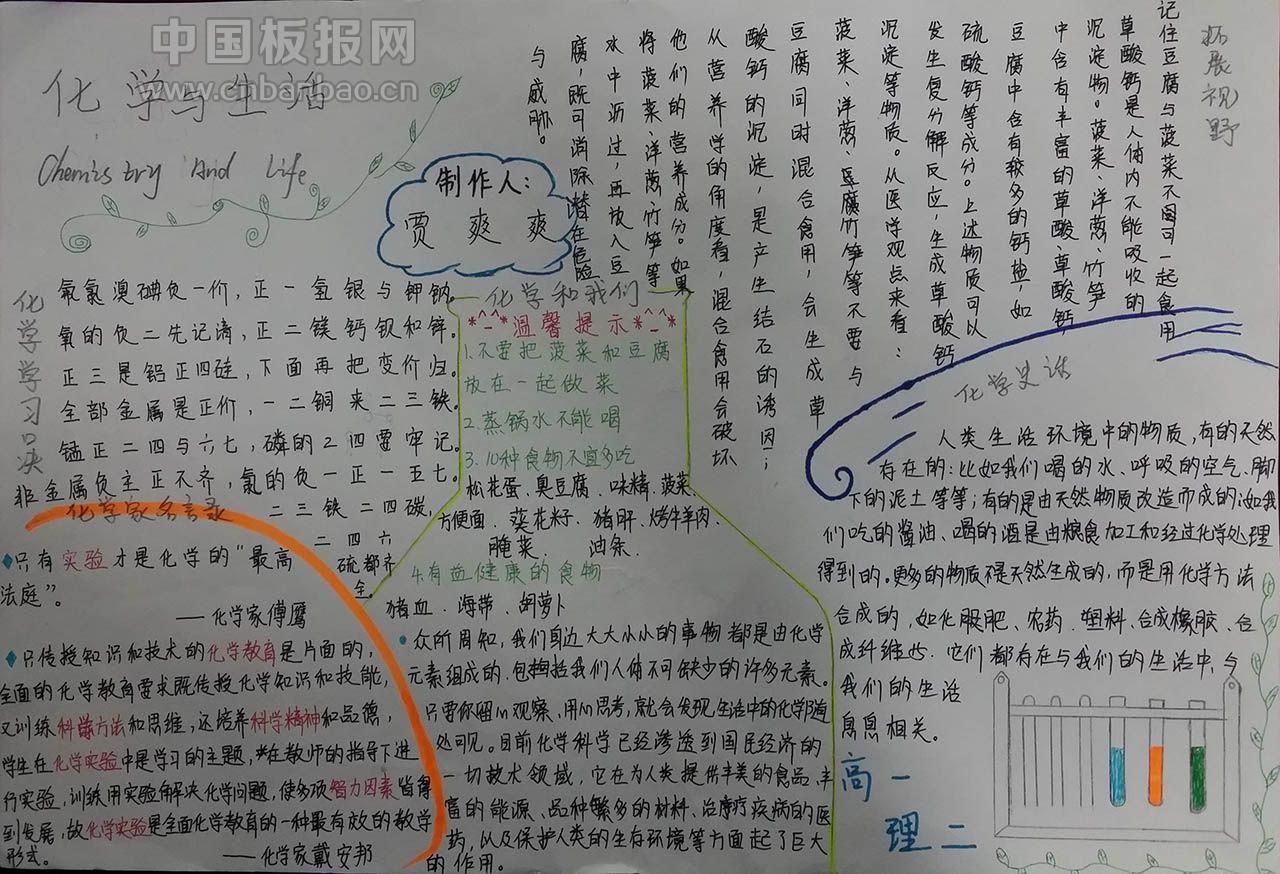 中国板报网
www.cnbanbao.cn
化学与生活
Chemistry And Life
制作人:
贾爽爽
拓展视野
记住豆腐与菠菜不图可一起食用
草酸钙是人体内不能吸收的
沉淀物。菠菜、洋葱、竹笋
中含有丰富的草酸、草酸钙,
豆腐中含有较多的钙盐,如
硫酸钙等成分。上述物质可以
发生复分解反应,生成草酸钙
沉淀等物质。从医学观点来看:
菠菜、洋葱、豆腐竹笋等不要与
豆腐同时混合食用,会生成草
酸钙的沉淀,是产生结石的诱因;
从营养学的角度看,混合食用会破坏
他们的营养成分。如果
将菠菜、洋葱、竹笋等
水中沥过,再放入豆
腐,既可消除潜在危险
与威胁。
化学学习口决
氟氯溴碘负一价,正一氢银与钾钠。
氧的负二先记清,正二镁钙钡和锌。
正三是铝正四硅,下面再把变价归。
全部金属是正价,一二铜来二三铁。
锰正二四与六七,磷的24要牢记。
非金属负主正不齐,氯的负一正一五七。
二三铁二四碳,
二四六
硫都齐
全。
化学家名言录
只有实验才是化学的“最高
法庭”。
——化学家傅鹰
只传授知识和技术的化学教育是片面的,
全面的化学教育要求既传授化学知识和技能,
又训练科学方法和思维,还培养科学精神和品德,
学生在化学实验中是学习的主题,在教师的指导下进
行实验,训练用实验解决化学问题,使多项智力因素皆得
到发展,故化学实验是全面化学教育的一种最有效的教学
形式。
——化学家戴安邦
化学和我们
*^_^*温馨提示*^_^*
1.不要把菠菜和豆腐
放在一起做菜
2.蒸锅水不能喝
3.10种食物不宜多吃
松花蛋、臭豆腐、味精、菠菜、
方便面、葵花籽、猪肝、烤牛羊肉、
腌菜、油条、
4.有益健康的食物
猪血、海带、胡萝卜
众所周知,我们身边大大小小的事物都是由化学
元素组成的、包括我们人体不可缺少的许多元素。
只要你留心观察、用心思考,就会发现生活中的化学随
处可见。目前化学科学已经渗透到国民经济的
一切技术领域,它在为人类提供丰美的食品、丰
富的能源、品种繁多的材料、治疗疾病的医
药,以及保护人类的生存环境等方面起了巨大
的作用。
化学史话
人类生活环境中的物质,有的天然
存在的:比如我们喝的水、呼吸的空气、脚
下的泥土等等;有的是由天然物质改造而成的:如我
们吃的酱油、喝的酒是由粮食加工和经过化学处理
得到的。更多的物质不是天然生成的,而是用化学方法
合成的,如化肥、农药、塑料、合成橡胶、合
成纤维些、它们都存在与我们的生活中,与
我们的生活
息息相关。
高一
理二